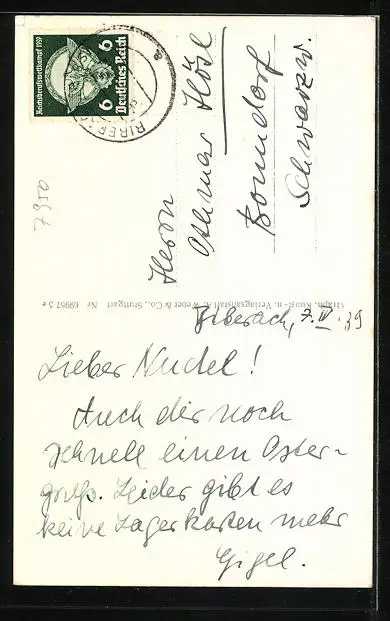 Reichsberufswettkampf 1939
6 6
Deutsches Reich
BIBERACH
a
7950
Herrn
Othmar Hösl
Bonndorf
Schwarzw.
Graph. Kunst- u. Verlagsanstalt A. Weber & Co., Stuttgart Nr 69967 5 e
Biberach, 7. IV. 39
Lieber Nudel!
Auch dir noch
schnell einen Oster-
gruß. Leider gibt es
keine Lagerkarten mehr
Gigel.